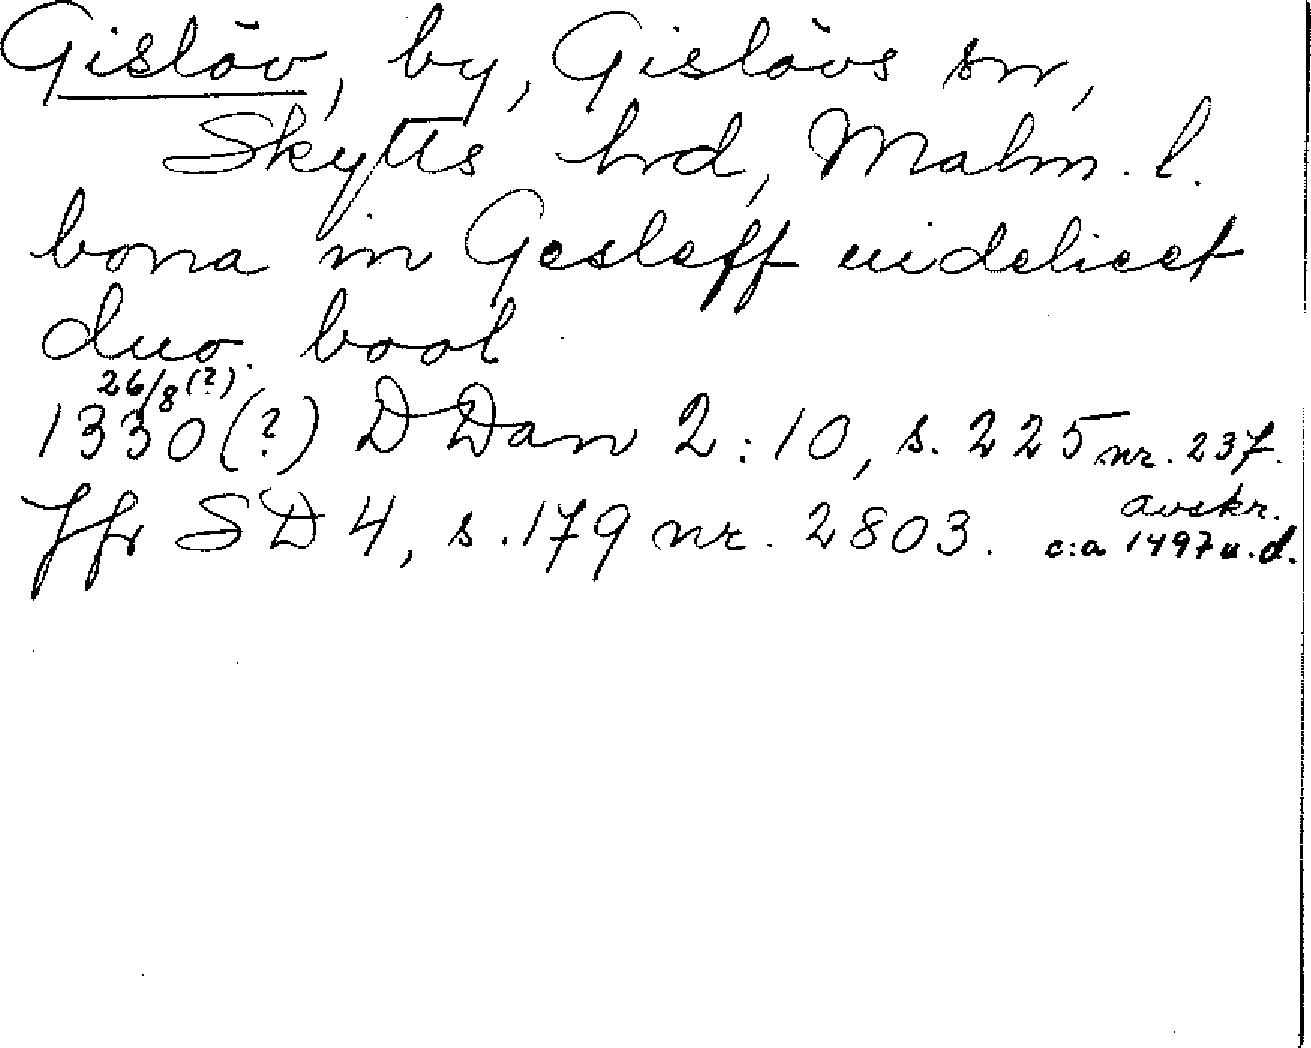 Gislöv, by, Gislövs sn,
Skytts hd, Malm. l.
bona in Gesleff uidelicet
duo bool
26/8 (?)
1330(?) DDan 2:10, s. 225 nr. 237.
Jfr SD 4, s. 179 nr. 2803.
avskr.
c:a 1497 u.d.